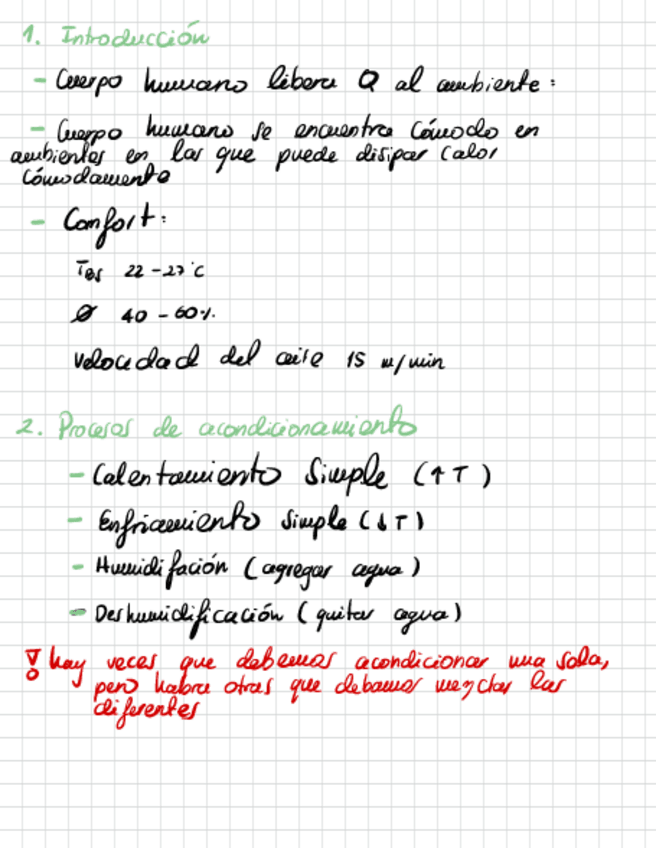 1. Introducción
- Cuerpo humano libera Q al ambiente:
- Cuerpo humano se encuentra cómodo en
ambientes en las que puede disipar calor
cómodamente
- Confort:
TBS 22-27°C
Ø 40-60%
velocidad del aire 15 m/min
2. Procesos de acondicionamiento
- Calentamiento Simple (↑T)
- Enfriamiento Simple (↓T)
- Humidifación (agregar agua)
- Deshumidificación (quitar agua)
! hay veces que debemos acondicionar una sola,
pero habra otras que debamos mezclar las
diferentes